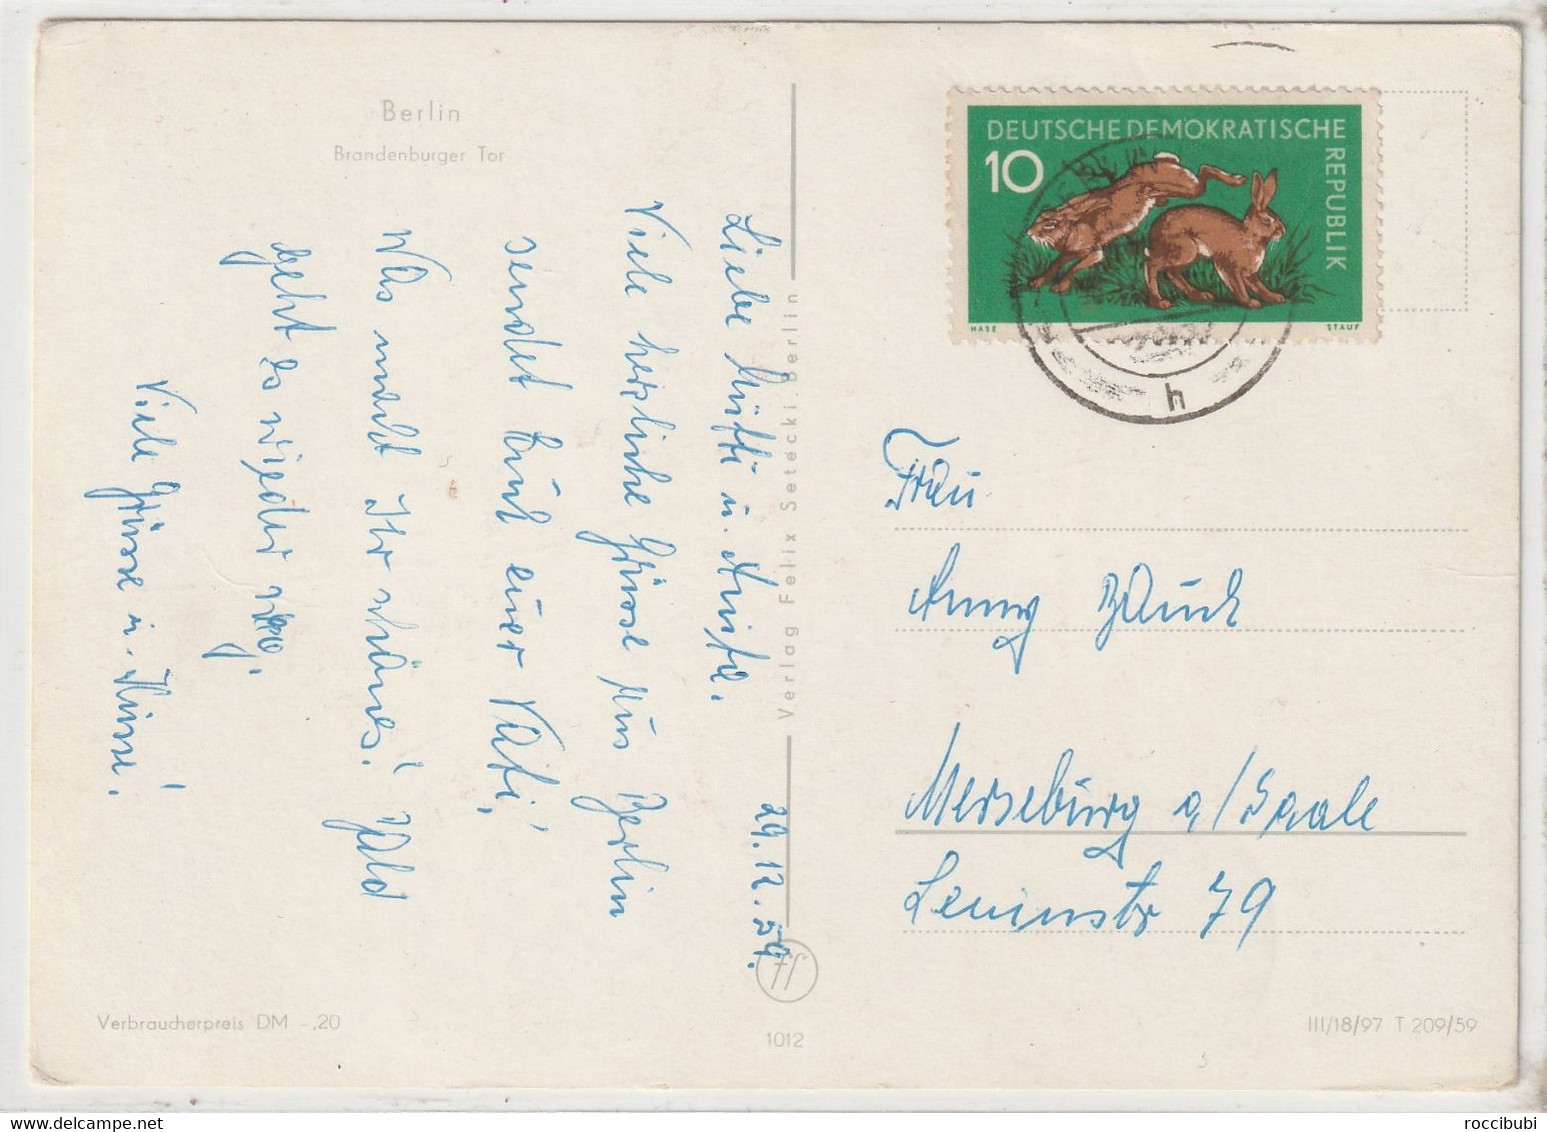 Berlin
Brandenburger Tor
29.12.59.
Liebe Mutti u.
Viele herzliche Grüsse aus Berlin
sendet Euch euer Vati.
Was macht Ihr schönes? Bald
geht es wieder
Viele Grüsse u. Küsse!
Verlag Felix Setecki, Berlin
ff
1012
Verbraucherpreis DM -,20
DEUTSCHE DEMOKRATISCHE
REPUBLIK
10
HASE
STAUF
BERLIN
h
Frau
Anny
Merseburg a/Saale
Leninstr 79
III/18/97 T 209/59
roccibubi